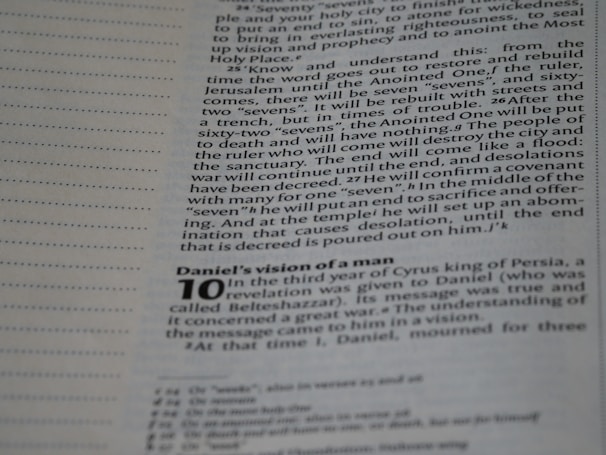 24 'Seventy "sevens"
ple and your holy city to finish
to put an end to sin, to atone for wickedness,
to bring in everlasting righteousness, to seal
up vision and prophecy and to anoint the Most
Holy Place.e
25 'Know and understand this: from the
time the word goes out to restore and rebuild
Jerusalem until the Anointed One,f the ruler,
comes, there will be seven "sevens", and sixty-
two "sevens". It will be rebuilt with streets and
a trench, but in times of trouble. 26 After the
sixty-two "sevens", the Anointed One will be put
to death and will have nothing.g The people of
the ruler who will come will destroy the city and
the sanctuary. The end will come like a flood:
war will continue until the end, and desolations
have been decreed. 27 He will confirm a covenant
with many for one "seven".h In the middle of the
"seven"h he will put an end to sacrifice and offer-
ing. And at the templei he will set up an abom-
ination that causes desolation, until the end
that is decreed is poured out on him.j'k
Daniel's vision of a man
10 In the third year of Cyrus king of Persia, a
revelation was given to Daniel (who was
called Belteshazzar). Its message was true and
it concerned a great war.a The understanding of
the message came to him in a vision.
2 At that time I, Daniel, mourned for three
24 Or "weeks"; also in verses 25 and 26
24 Or restrain
24 Or the most holy One
25 Or an anointed one; also in verse 26
26 Or death and will have no one; or death, but not for himself
27 Or "week"